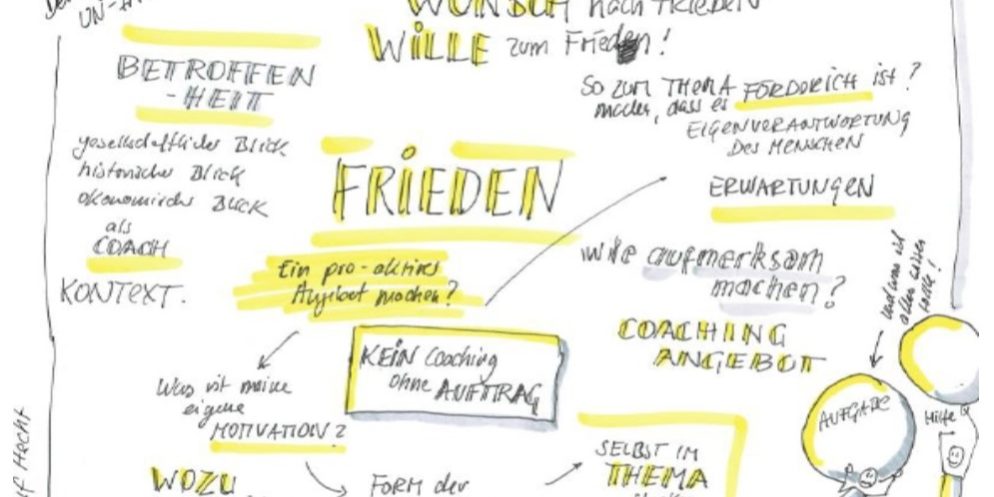 WUNSCH nach Frieden
WILLE zum Frieden!
BETROFFEN
-HEIT
gesellschaftlicher Blick
historischer Blick
ökonomischer Blick
als
COACH
KONTEXT.
FRIEDEN
Ein pro-aktives
Angebot machen?
So zum THEMA
machen, dass es FÖRDERLICH ist?
EIGENVERANTWORTUNG
DES MENSCHEN
ERWARTUNGEN
wie aufmerksam
machen?
COACHING
ANGEBOT
KEIN Coaching
ohne AUFTRAG
Was ist meine
eigene
MOTIVATION?
WOZU
FORM der
SELBST IM
THEMA
AUFGABE
Hilfe
Hecht